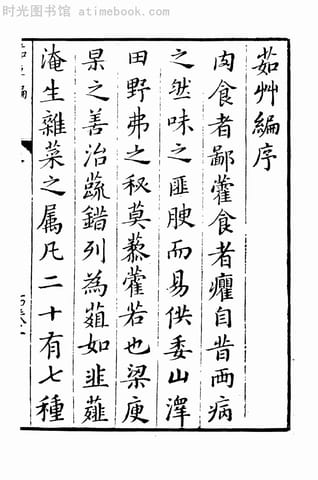 时光图书馆 - atimebook.com
茹艸編序
肉食者鄙藿食者癯自昔两病
之然味之匪腴而易供委山澤
田野弗之秘莫藜藿若也梁庾
杲之善治蔬錯列為葅如韭薤
淹生雜菜之属凡二十有七種